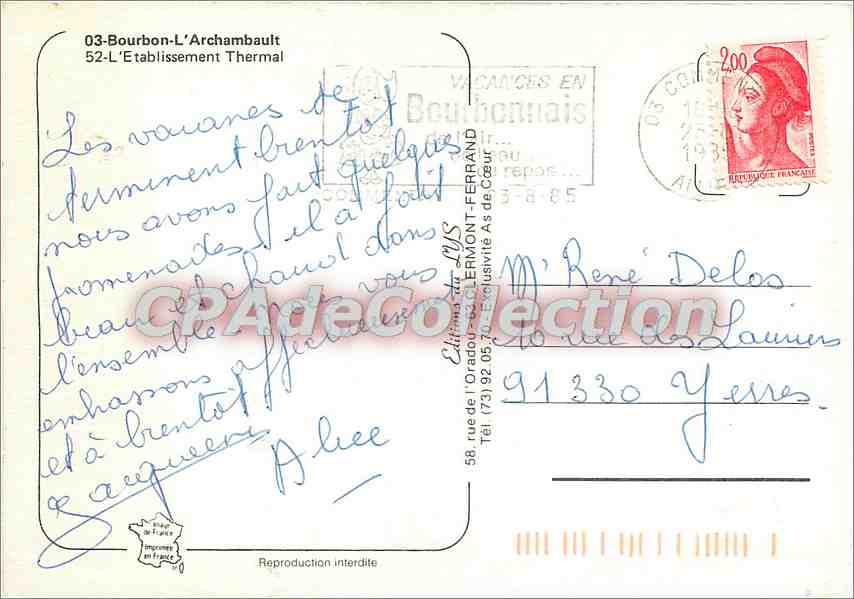 03-Bourbon-L'Archambault
52-L'Etablissement Thermal
Les vacances se
terminent bientôt
nous avons fait quelques
promenades. il a fait
beau et chaud dans
l'ensemble nous vous
embrassons affectueusement
et à bientôt
Alice
VACANCES EN
Bourbonnais
de l'air...
de l'eau...
du repos...
3-8-85
03 COMMEN
2,00
POSTES
REPUBLIQUE FRANÇAISE
Editions du LYS
58, rue de l'Oradou - 63 CLERMONT-FERRAND
Tél. (73) 92.05.70 - Exclusivité As de Cœur
Mr René Delos
10 rue des Lauriers
91330 Yerres
CPAdeCollection
de-France
Imprimée
en France
Reproduction interdite